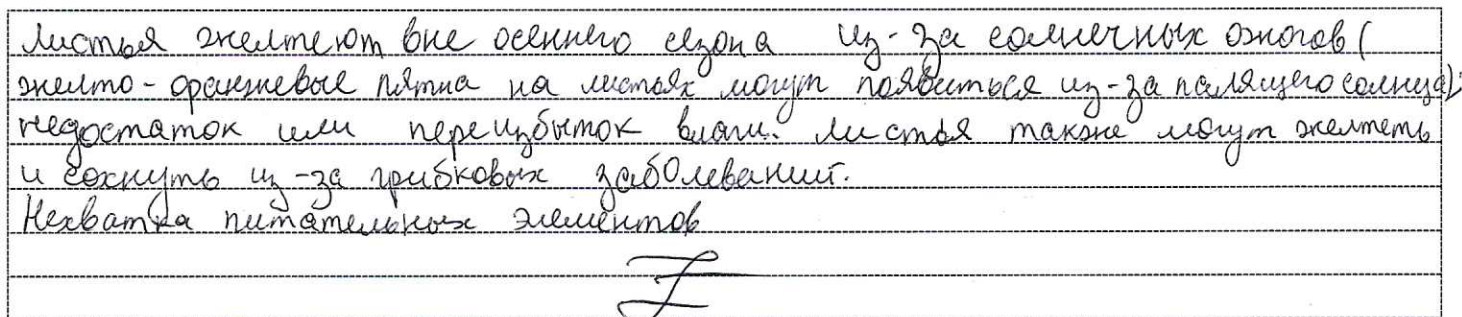 Листья желтеют вне осеннего сезона из-за солнечных ожогов (
желто-оранжевые пятна на листьях могут появиться из-за палящего солнца);
недостаток или переизбыток влаги. Листья также могут желтеть
и сохнуть из-за грибковых заболеваний.
Нехватка питательных элементов